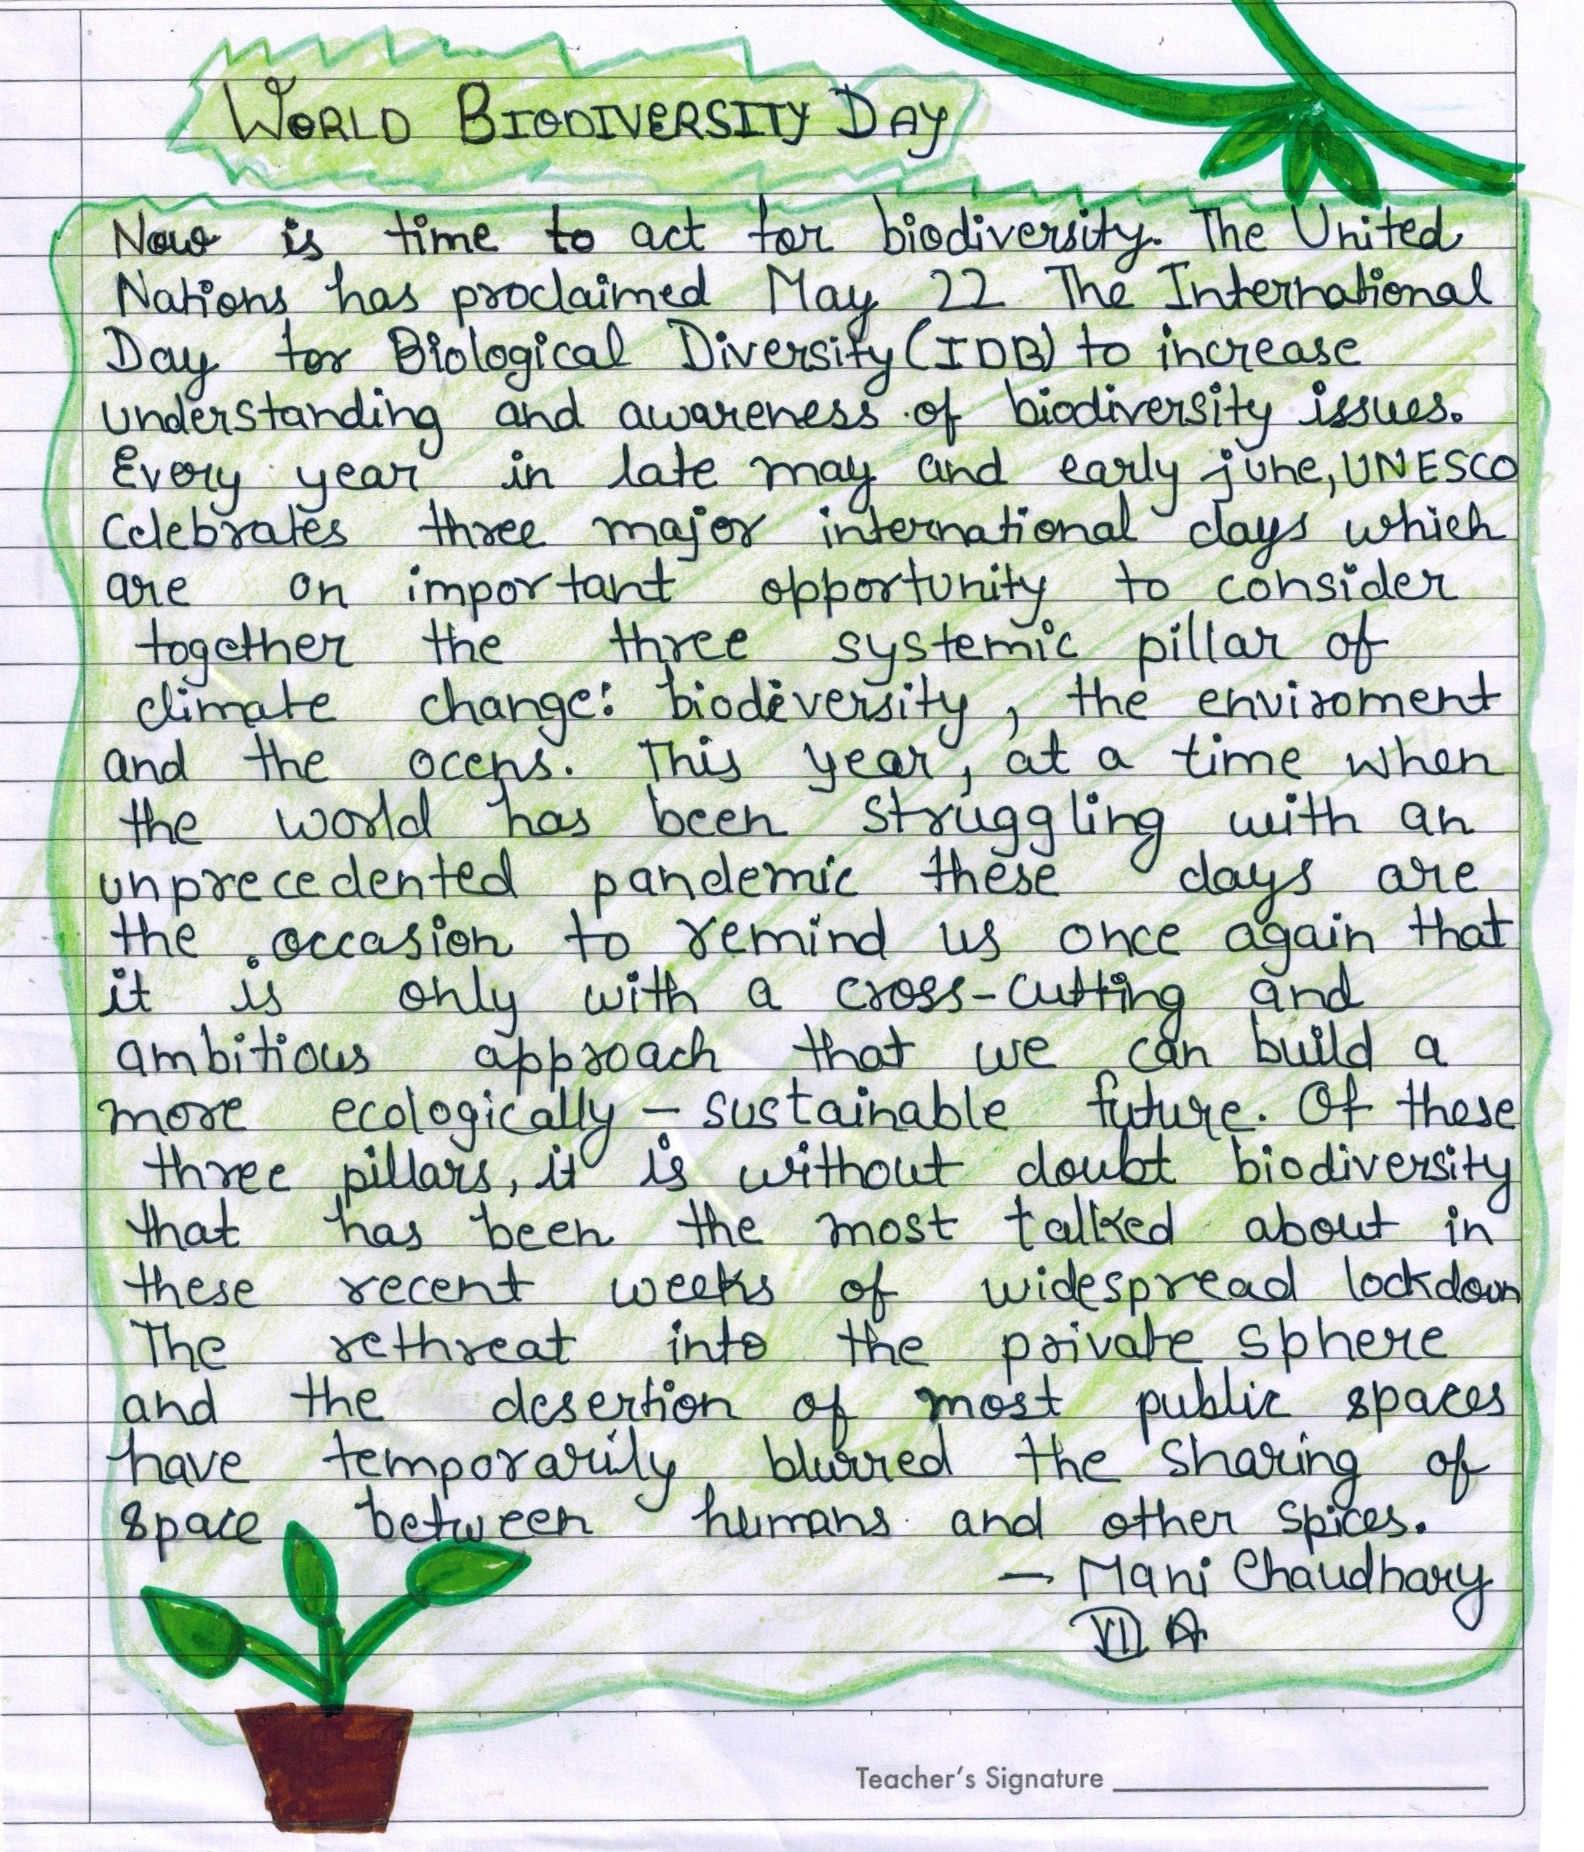 WORLD BIODIVERSITY DAY
Now is time to act for biodiversity. The United
Nations has proclaimed May 22 The International
Day for Biological Diversity (IDB) to increase
understanding and awareness of biodiversity issues.
Every year in late may and early june, UNESCO
Celebrates three major international days which
are on important opportunity to consider
together the three systemic pillar of
climate change: biodiversity, the enviroment
and the ocens. This year, at a time when
the world has been struggling with an
unprecedented pandemic these days are
the occasion to remind us once again that
it is only with a cross-cutting and
ambitious approach that we can build a
more ecologically - sustainable future. Of these
three pillars, it is without doubt biodiversity
that has been the most talked about in
these recent weeks of widespread lockdown
The rethreat into the private sphere
and the desertion of most public spaces
have temporarily blurred the sharing of
space between humans and other spices.
- Mani Chaudhary
VII A
Teacher's Signature